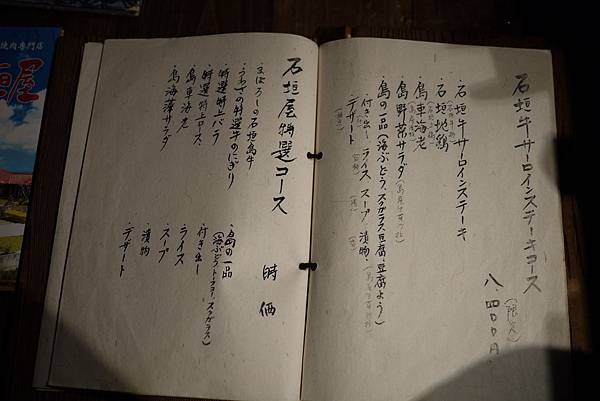 石垣牛サーロインステーキコース
(限定)
八、四〇〇円
・石垣牛サーロインステーキ
・石垣地鶏
・島車海老
・島野菜サラダ
・島の一品(海ぶどう、スクガラス豆腐、豆腐よう)
・付き出し ライス スープ 漬物・
デザート
石垣屋特選コース
時価
・まぼろしの石垣島牛
・うわさの特選牛のにぎり
・特選特上バラ
・特選特上ロース
・島車海老
・島海藻サラダ
・島の一品
・付き出し
・ライス
・スープ
・漬物
・デザート
焼肉専門店
垣屋